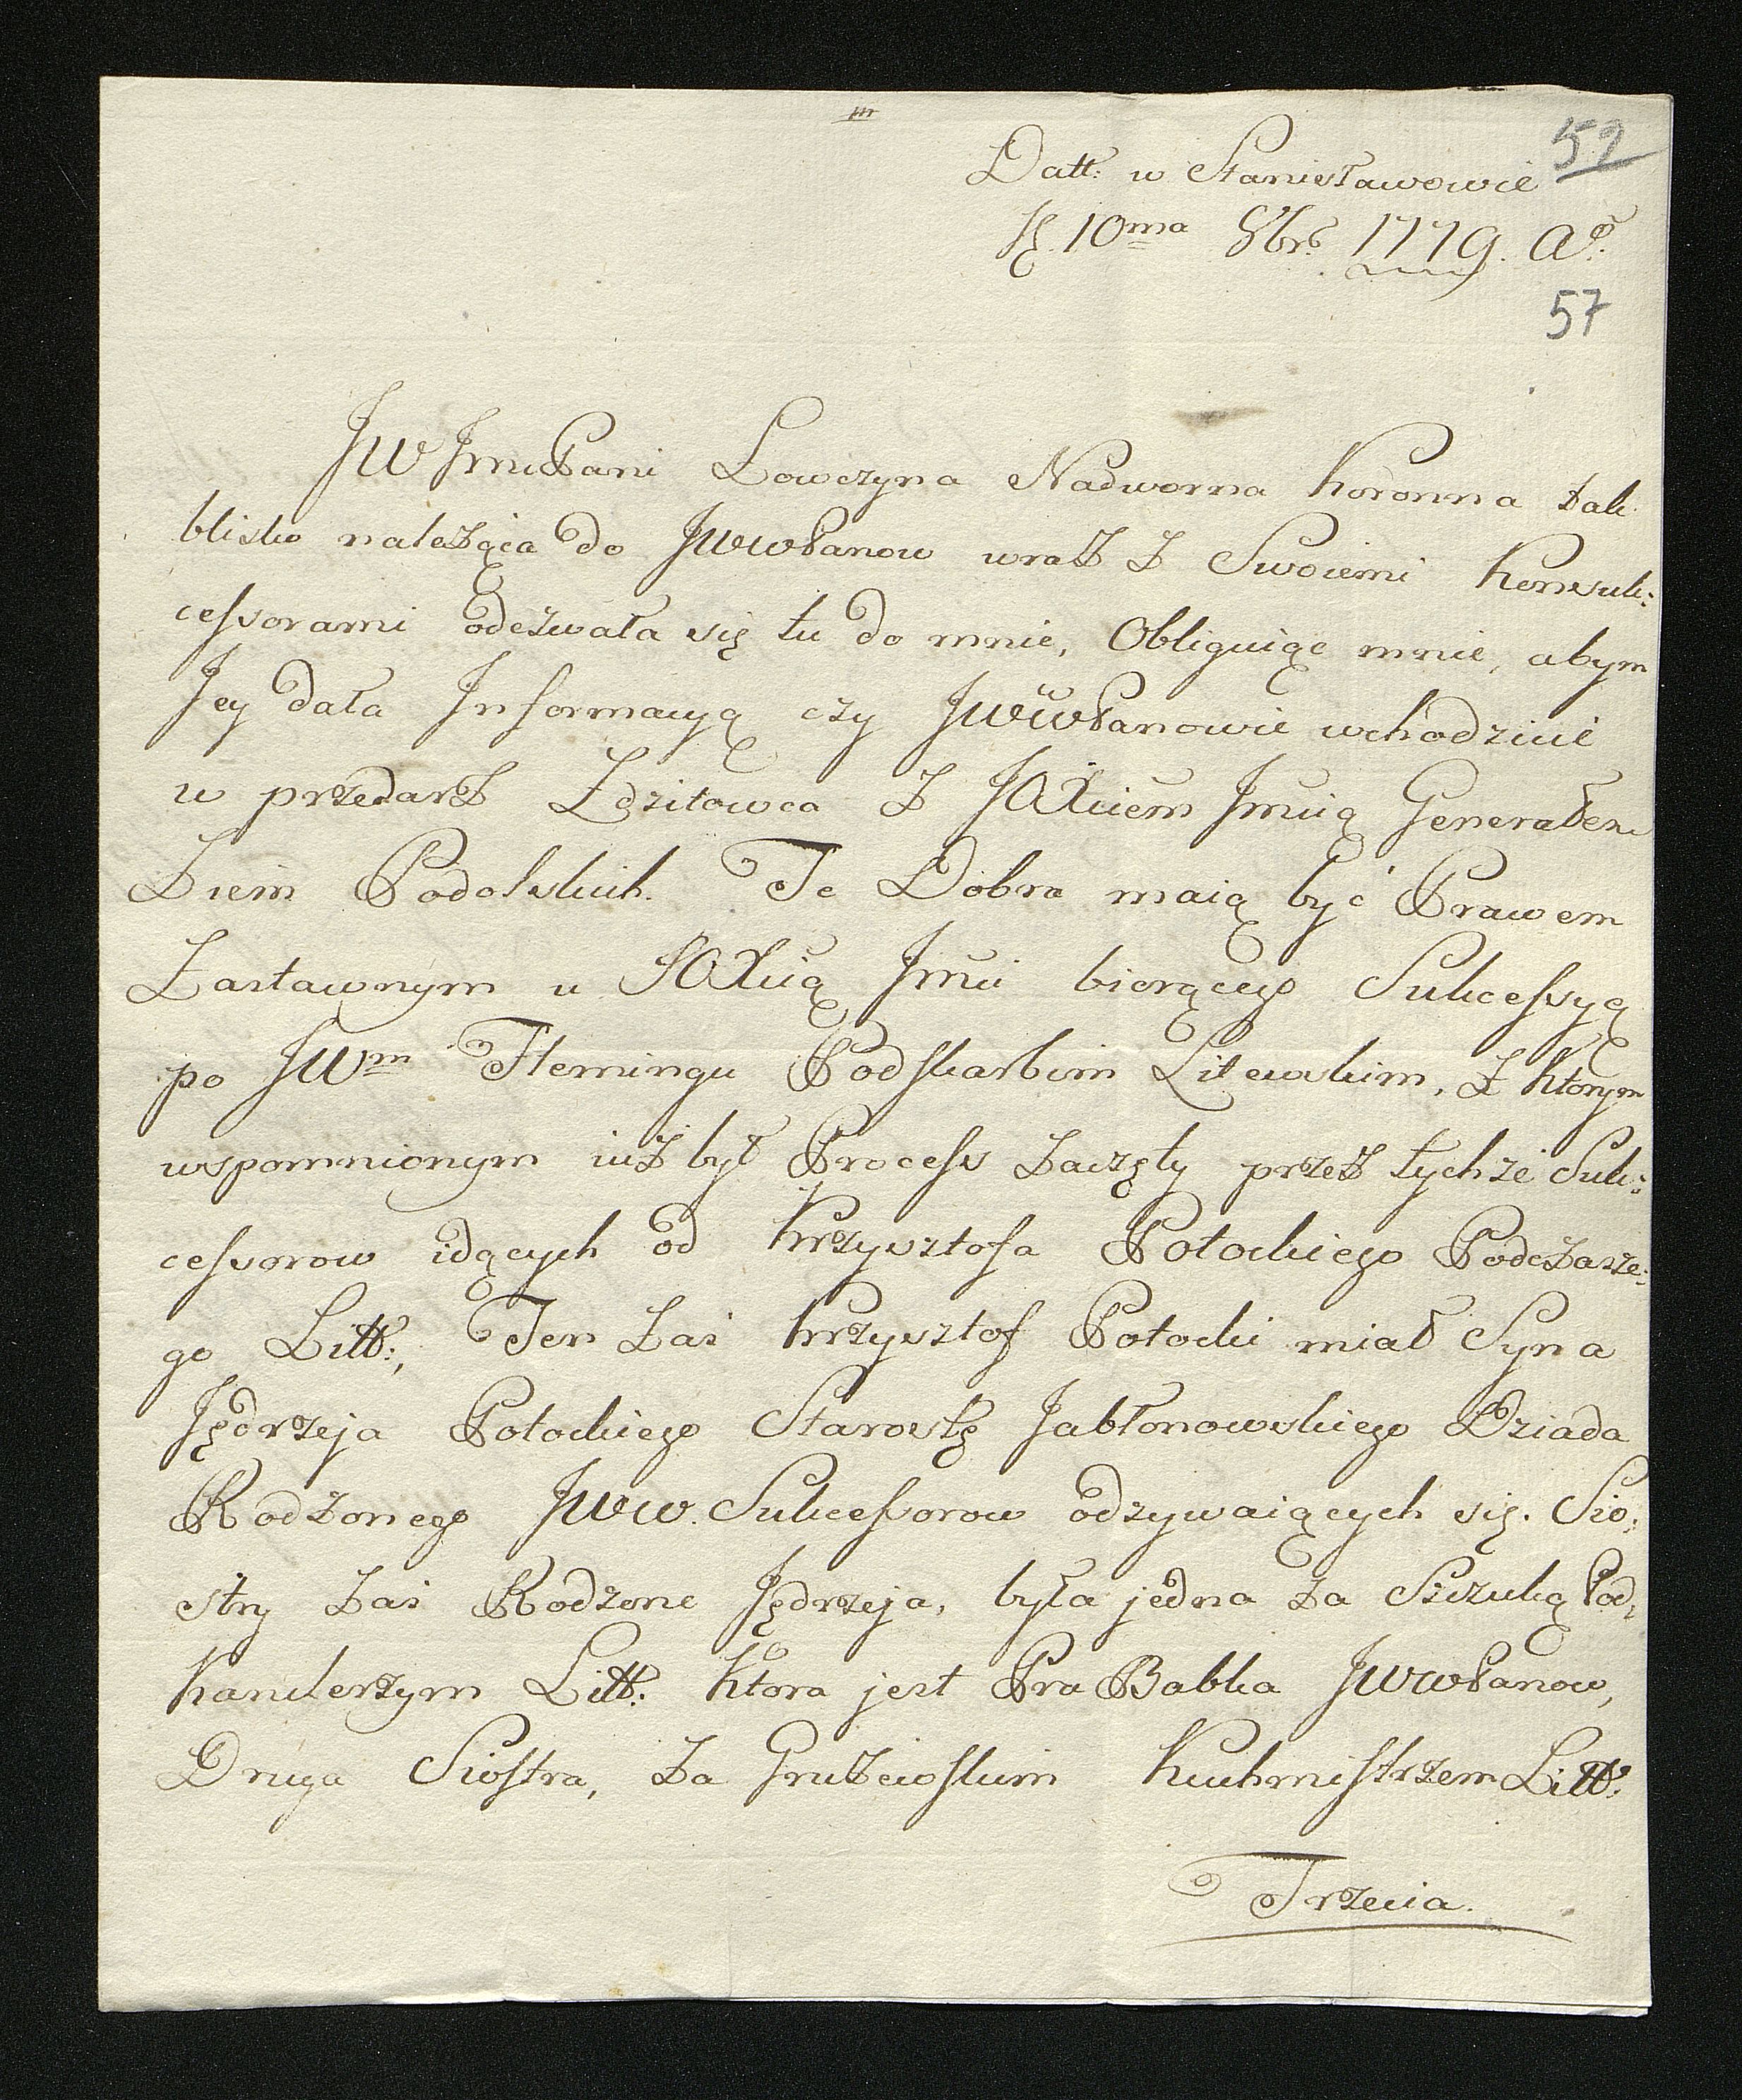 52
Datt: w Stanisławowie
10ma 8br: 1779. Ao.
57
JW JmćPani Łowczyna Nadworna Koronna tak
blisko należąca do JWWPanow wraz z Swoiemi Konsuk:
cessorami odezwała się tu do mnie, Obliguiąc mnie, abym
Jey dała Informacyą czy JWWPanowie wchodzicie
w przedarz Zdzitowca z JOXciem Jmcią Generałem
Ziem Podolskich. Te Dobra maią być Prawem
Zastawnym u JOXcią Jmci biorącego Sukcessyą
po JWm Flemingu Podskarbim Litewskim, z ktorym
wspomnionym iuż był Process zaczęty przez tychże Suk:
cessorow idących od Krzysztofa Potockiego Podczasze:
go Litt:, Ten zas Krzysztof Potocki miał Syna
Jędrzeja Potockiego Starostę Jabłonowskiego Dziada
Rodzonego JWW. Sukcessorow odzywaiących się. Sio:
stry zas Rodzone Jędrzeja, była jedna za Szczuką Pod:
Kanclerzym Litt: Ktora jest Pra Babka JWWPanow,
Druga Siostra, za Gruzewskim Kuchmistrzem Litt:
Trzecia.